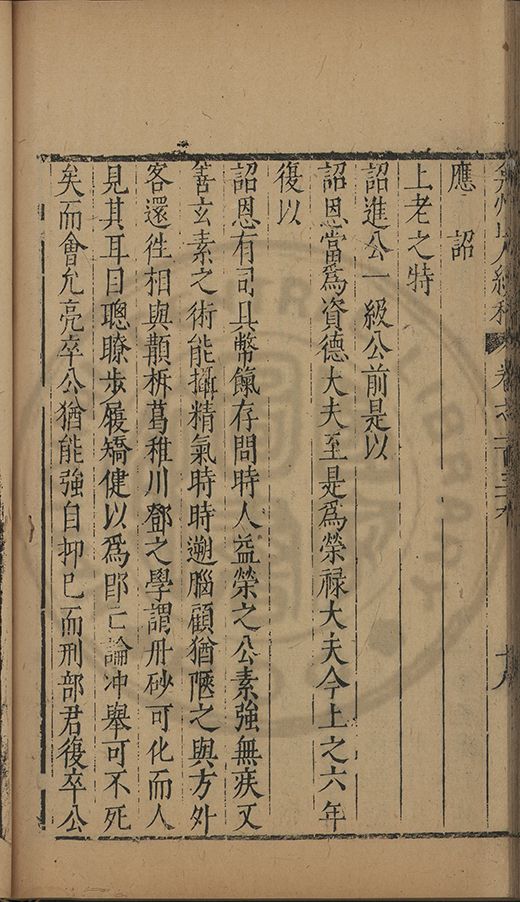 弇州山人續稿 卷之一百三十六 十八
應 詔
上老之特
詔進公一級公前是以
詔恩當爲資德大夫至是爲榮祿大夫今上之六年
復以
詔恩有司具幣餼存問時人益榮之公素強無疾又
善玄素之術能攝精氣時時遡腦顧猶陿之與方外
客還徃相與析葛稚川之學謂丹砂可化而人
見其耳目聰瞭步履矯健以爲即亡論冲舉可不死
矣而會允亮卒公猶能強自抑已而刑部君復卒公